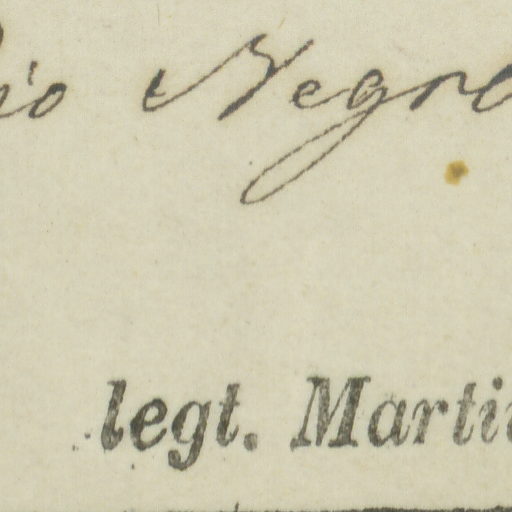 Rio Negro
legt. Marti